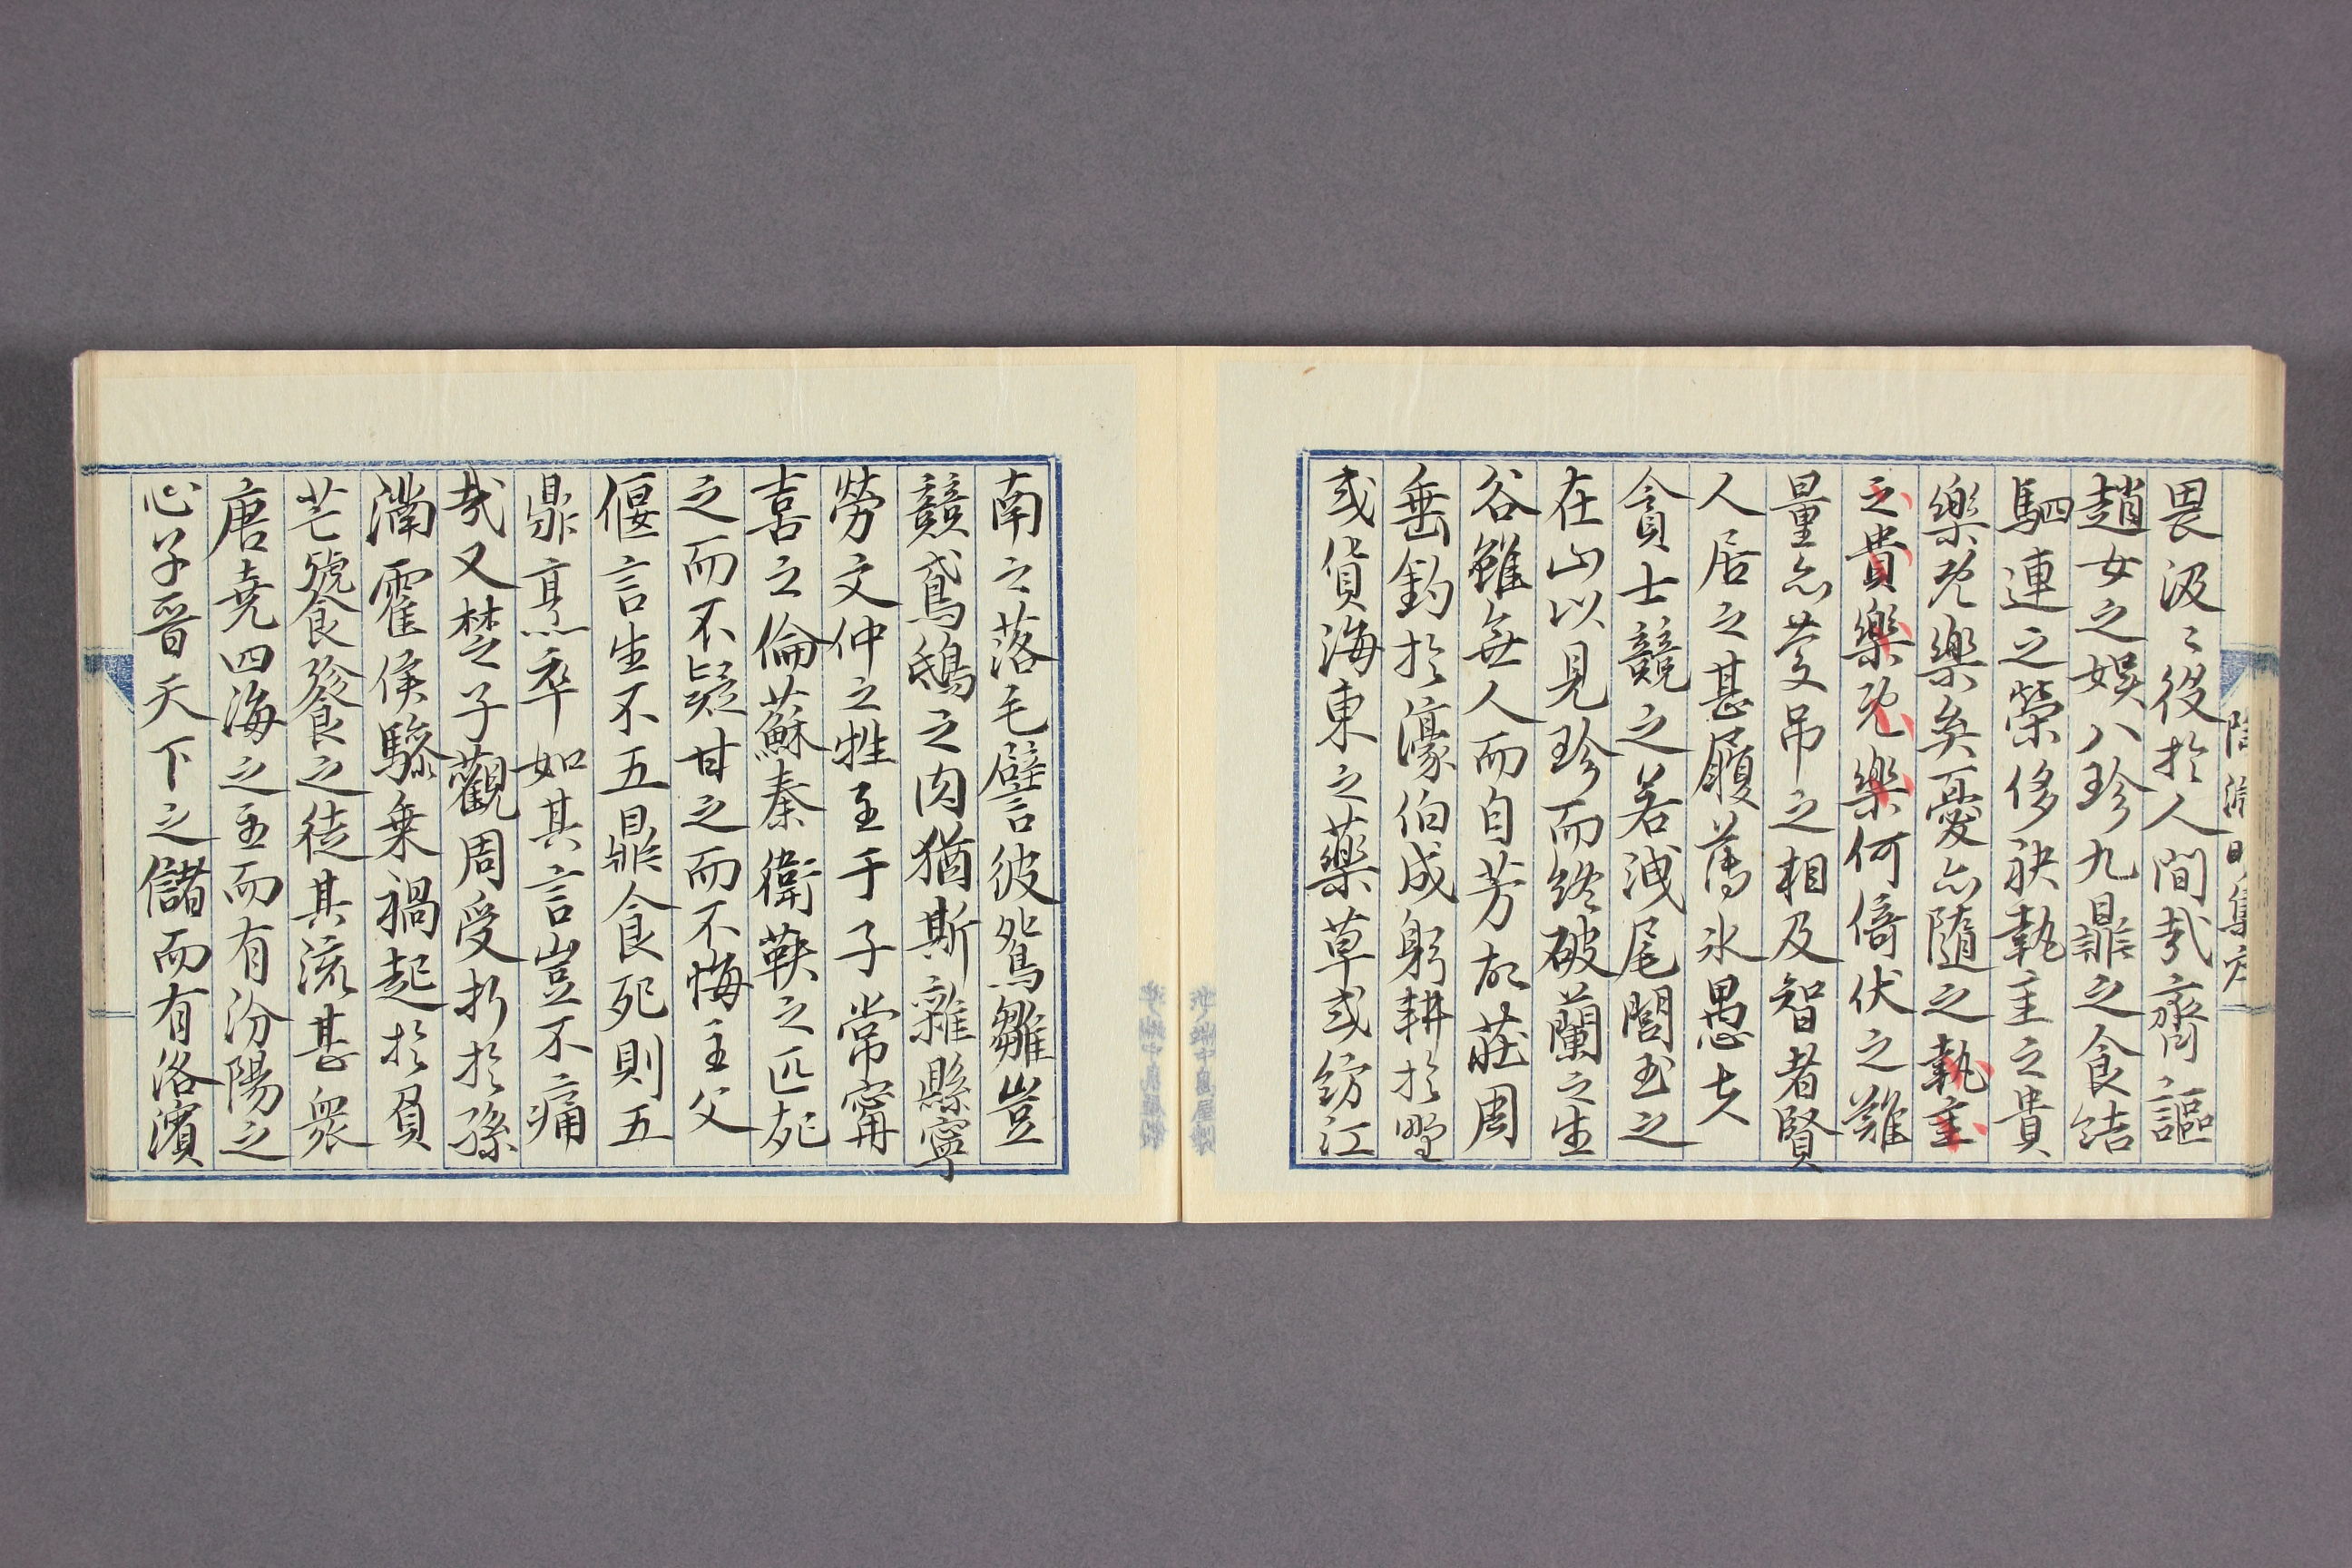 畏汲〻役於人間哉齊謳
趙女之娛八珍九鼎之食結
駟連之榮侈袂執圭之貴
樂既樂矣憂亦隨之執圭
之貴樂既樂何倚伏之難
量亦慶吊之相及智者賢
人居之甚履薄氷愚夫
貪士競之若洩尾閭玉之
在山以見珍而終破蘭之生
谷雖無人而自芳故莊周
垂釣於濠伯成躬耕於野
或貨海東之藥草或紡江
南之落毛譬彼鴛雛豈
競鳶鴟之肉猶斯雜縣寧
勞文仲之牲至于子常甯
喜之倫蘇秦衛鞅之匹死
之而不疑甘之而不悔主父
偃言生不五鼎食死則五
鼎烹卒如其言豈不痛
哉又楚子觀周受折於孫
滿霍侯驂乗禍起於負
芒饕餮之徒其流甚衆
唐堯四海之主而有汾陽之
心子晉天下之儲而有洛濱